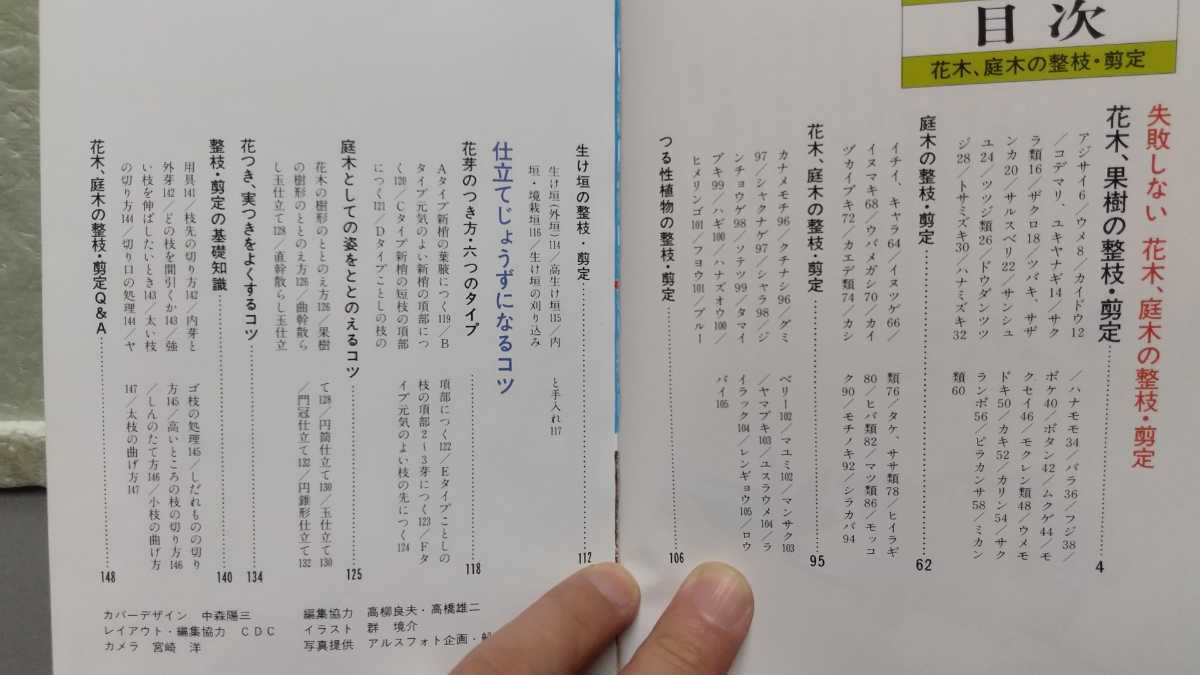 目次
花木、庭木の整枝・剪定
失敗しない 花木、庭木の整枝・剪定
花木、果樹の整枝・剪定……4
アジサイ6／ウメ8／カイドウ12
／コデマリ、ユキヤナギ14／サク
ラ類16／ザクロ18／ツバキ、サザ
ンカ20／サルスベリ22／サンシュ
ユ24／ツツジ類26／ドウダンツツ
ジ28／トサミズキ30／ハナミズキ32
／ハナモモ34／バラ36／フジ38／
ボケ40／ボタン42／ムクゲ44／モ
クセイ46／モクレン類48／ウメモ
ドキ50／カキ52／カリン54／サク
ランボ56／ピラカンサ58／ミカン
類60
庭木の整枝・剪定……62
イチイ、キャラ64／イヌツゲ66／
イヌマキ68／ウバメガシ70／カイ
ヅカイブキ72／カエデ類74／カシ
類76／タケ、ササ類78／ヒイラギ
80／ヒバ類82／マツ類86／モッコ
ク90／モチノキ92／シラカバ94
花木、庭木の整枝・剪定……95
カナメモチ96／クチナシ96／グミ
97／シャクナゲ97／シャラ98／ジ
ンチョウゲ98／ソテツ99／タマイ
ブキ99／ハギ100／ハナズオウ100／
ヒメリンゴ101／フヨウ101／ブルー
ベリー102／マユミ102／マンサク103
／ヤマブキ103／ユスラウメ104／ラ
イラック104／レンギョウ105／ロウ
バイ105
つる性植物の整枝・剪定……106
生け垣の整枝・剪定……112
生け垣（外垣）114／高生け垣115／内
垣・境栽垣116／生け垣の刈り込み
と手入れ117
仕立てじょうずになるコツ
花芽のつき方・六つのタイプ……118
Aタイプ新梢の葉腋につく119／B
タイプ元気のよい新梢の頂部につ
く120／Cタイプ新梢の短枝の頂部
につく121／Dタイプことしの枝の
頂部につく122／Eタイプことしの
枝の頂部2〜3芽につく123／Fタ
イプ元気のよい枝の先につく124
庭木としての姿をととのえるコツ……125
花木の樹形のととのえ方126／果樹
の樹形のととのえ方126／曲幹散ら
し玉仕立て128／直幹散らし玉仕立
て128／円筒仕立て130／玉仕立て130
／門冠仕立て132／円錐形仕立て132
花つき、実つきをよくするコツ……134
整枝・剪定の基礎知識……140
用具141／枝先の切り方142／内芽と
外芽142／どの枝を間引くか143／強
い枝を伸ばしたいとき143／太い枝
の切り方144／切り口の処理144／ヤ
ゴ枝の処理145／しだれものの切り
方145／高いところの枝の切り方146
／しんのたて方146／小枝の曲げ方
147／太枝の曲げ方147
花木、庭木の整枝・剪定Q&A……148
カバーデザイン 中森陽三
レイアウト・編集協力 CDC
カメラ 宮崎 洋
編集協力 高柳良夫・高橋雄二
イラスト 群 境介
写真提供 アルスフォト企画・